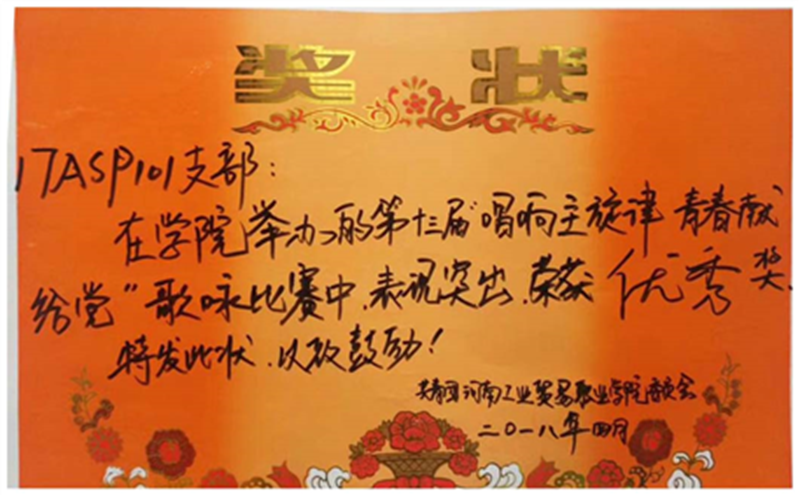 奖状
17ASP101支部:
在学院举办的第十三届"唱响主旋律 青春献
给党"歌咏比赛中,表现突出,荣获 优秀奖
特发此状,以致鼓励!
共青团河南工业贸易职业学院委员会
二〇一八年四月